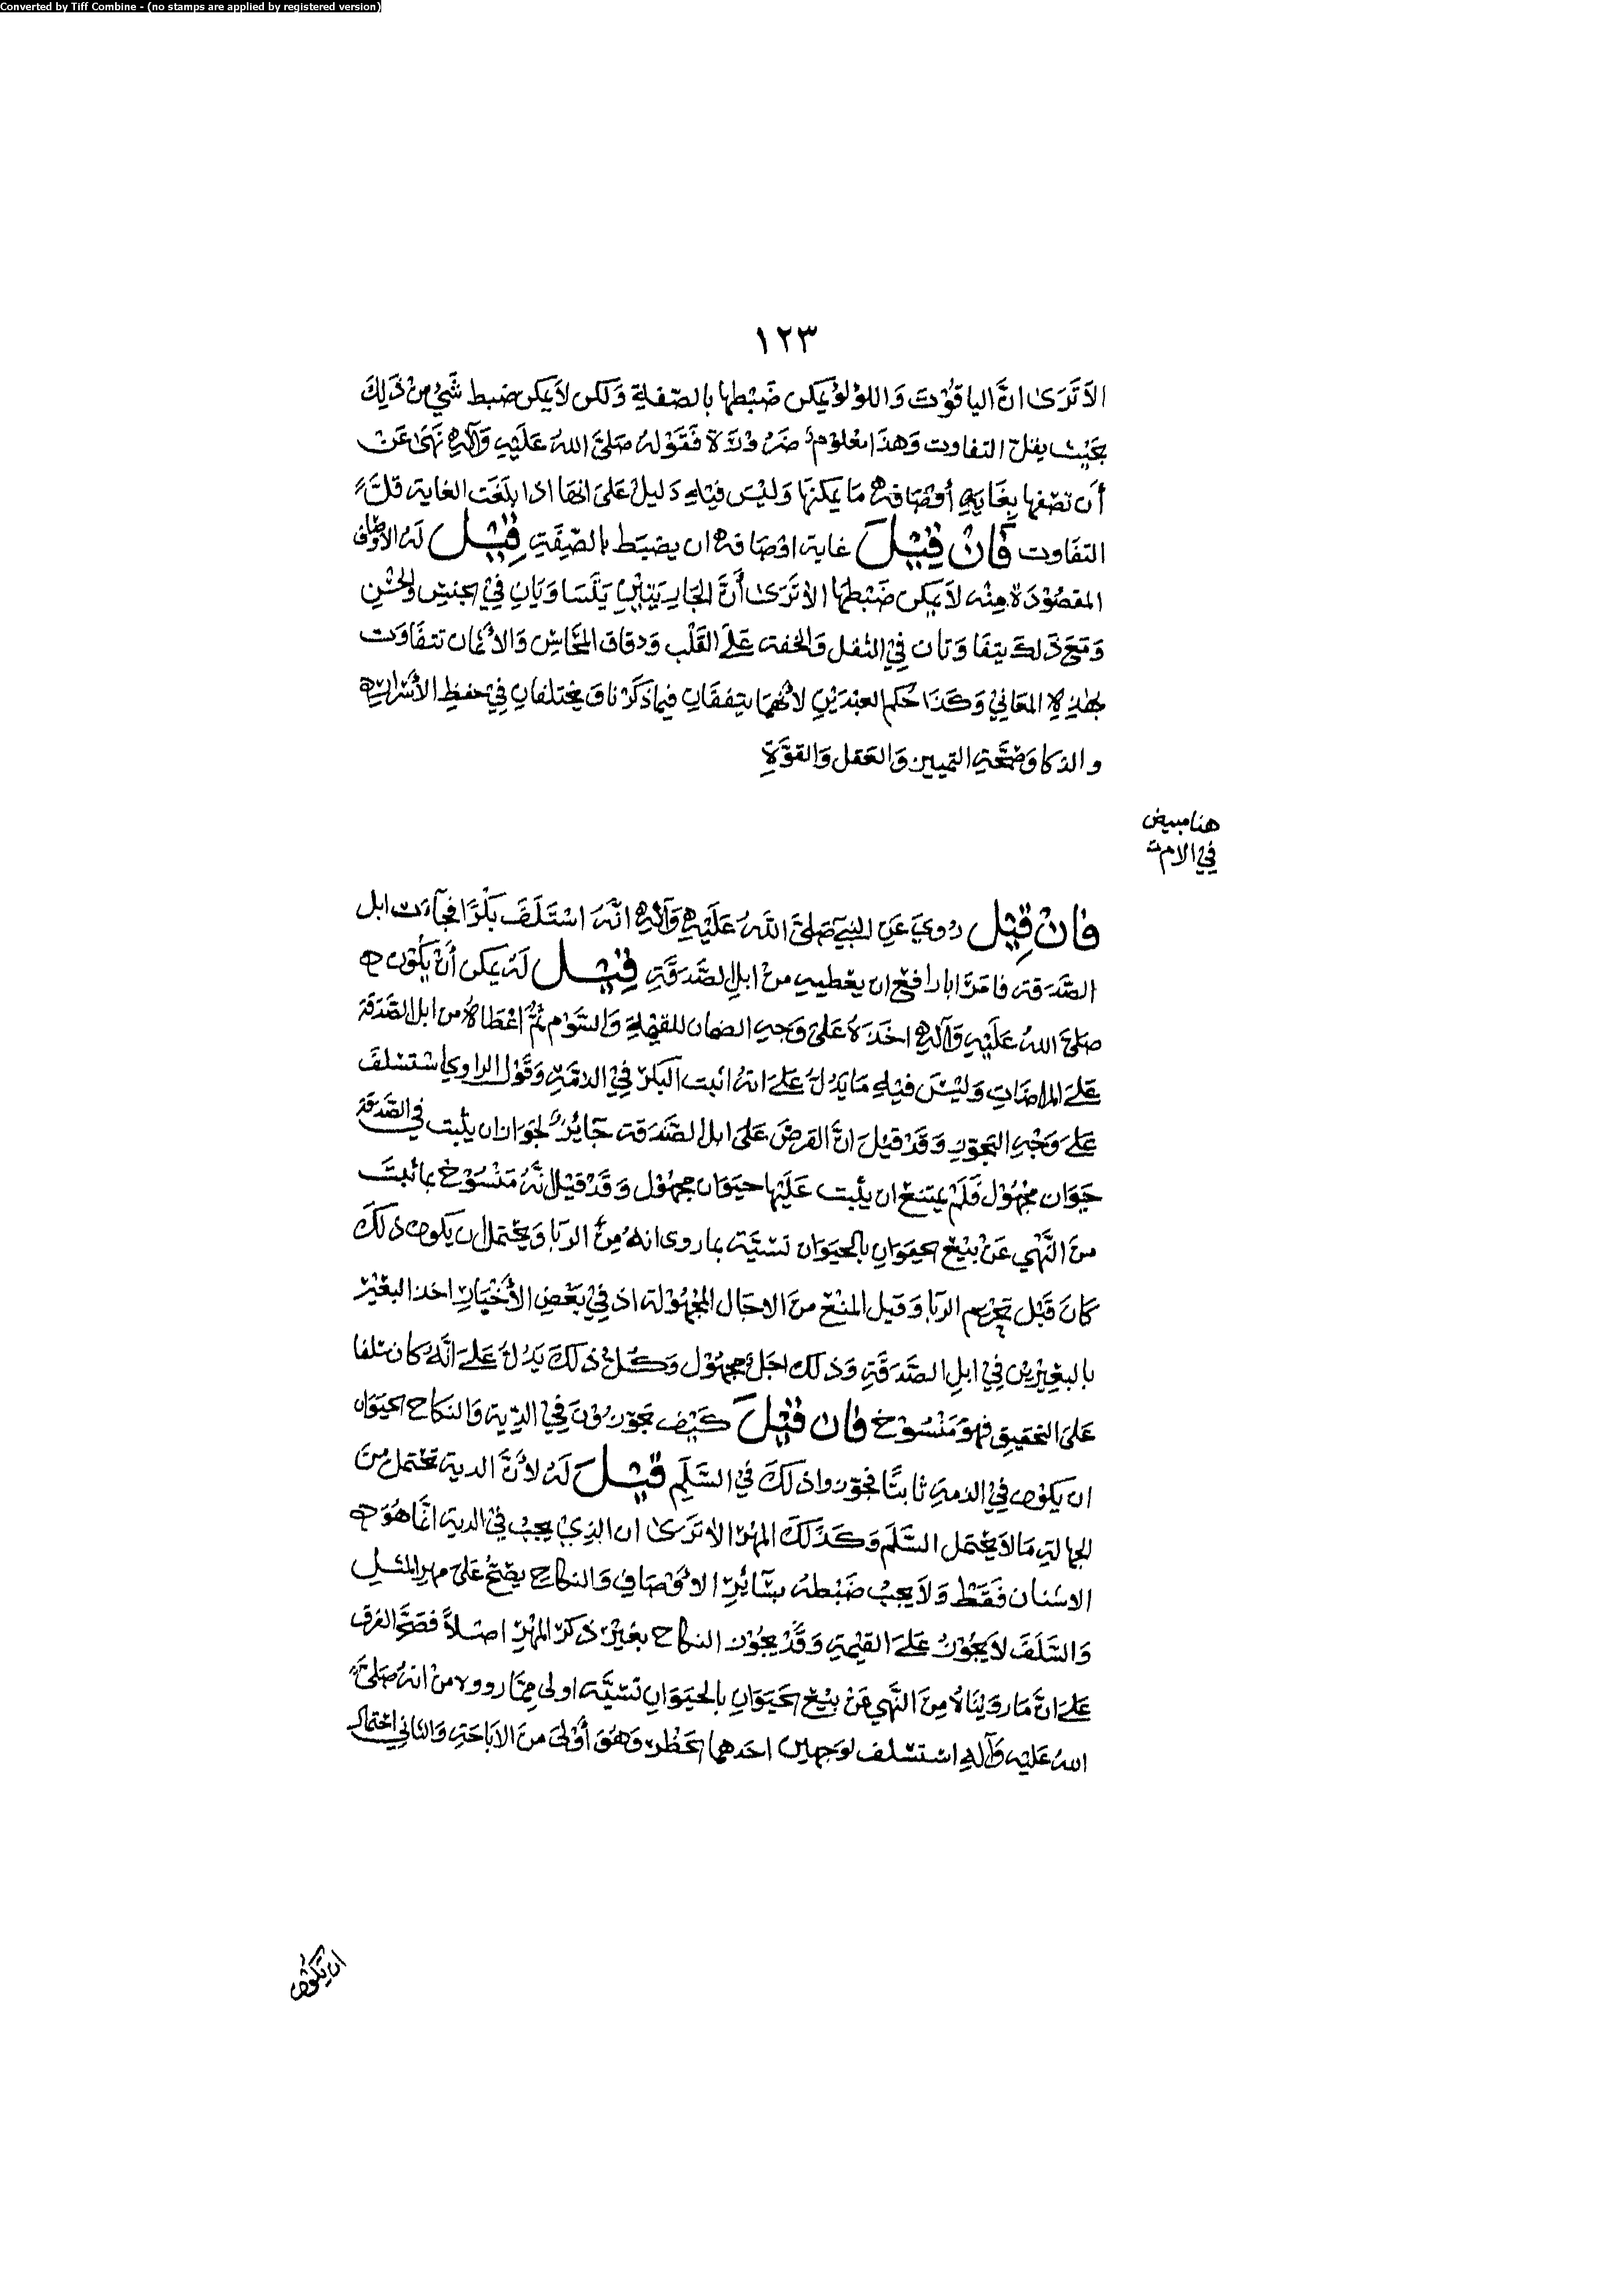 Converted by Tiff Combine - (no stamps are applied by registered version)
١٢٣
الا ترى ان الياقوت واللؤلؤ يمكن ضبطها بالصفة ولكن لا يمكن ضبط شيء من ذلك
بحيث يقل التفاوت وهذا معلوم ضرورة فقوله صلى الله عليه وآله نهى عن
أن تصفها بغاية أوصافها ما يمكنها وليس فيه دليل على انها اذا بلغت الغاية قل
التفاوت فان قيل غاية اوصافه ان يضبط بالصفة قيل له الاوصاف
المقصودة منه لا يمكن ضبطها الا ترى أن الجاريتين يتساويان في الجنس والحسن
ومع ذلك يتفاوتان في الثقل والخفة على القلب ودقاق المحاسن والأثمان تتفاوت
بهذه المعاني وكذا حكم العبدين لأنهما يتفقان فيما ذكرنا ويختلفان في حفظ الأسرار
والذكا وصحة التمييز والعقل والقوة
هنا مبيض
في الام
فان قيل روي عن النبي صلى الله عليه وآله انه استلف بكرا فجاءت ابل
الصدقة فامر ابا رافع ان يعطيه من ابل الصدقة قيل له يمكن أن يكون
صلى الله عليه وآله اخذه على وجه الضمان للقيمة والسوم ثم اعطاه من ابل الصدقة
على المراضاة وليس فيه ما يدل على انه اثبت البكر في الذمة وقول الراوي استسلف
على وجه التجوز وقد قيل ان القرض على ابل الصدقة جائز لجواز ان يثبت في الصدقة
حيوان مجهول فلم يمتنع ان يثبت عليها حيوان مجهول وقد قيل انه منسوخ بما ثبت
من النهي عن بيع الحيوان بالحيوان نسيئة بما روى انه من الربا ويحتمل ان يكون ذلك
كان قبل تحريم الربا وقبل المنع من الاجال المجهولة اذ في بعض الأخبار اخذ البعير
بالبعيرين في ابل الصدقة وذلك اجل مجهول وكل ذلك يدل على انه كان سلفا
على التحقيق فهو منسوخ فان قيل كيف تجوزون في الدية والنكاح الحيوان
ان يكون في الذمة ثابتا فجوزوا ذلك في السلم قيل له لأن الدية تحتمل من
الجهالة ما لا يحتمل السلم وكذلك المهر الا ترى ان الذي يجب في الدية انما هو
الاسنان فقط ولا يجب ضبطه بسائر الاوصاف والنكاح يصح على مهر المثل
والسلف لا يجوز على القيمة وقد يجوز النكاح بغير ذكر المهر اصلا فصح الفرق
على ان ما رويناه من النهي عن بيع الحيوان بالحيوان نسيئة اولى مما رووه من انه صلى
الله عليه وآله استسلف لوجهين احدهما الحظر وهو أولى من الاباحة والثاني احتمال
ان يكون